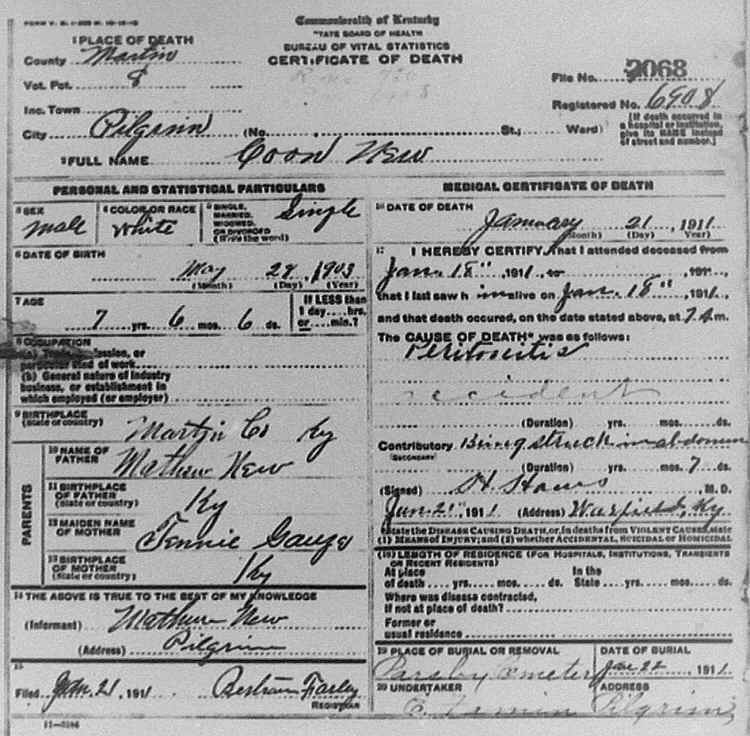 FORM V. S.
Commonwealth of Kentucky
STATE BOARD OF HEALTH
BUREAU OF VITAL STATISTICS
CERTIFICATE OF DEATH
1 PLACE OF DEATH
County Martin
Vot. Pct. 8
Inc. Town
City Pilgrim (No. St.; Ward)
File No. 2068
Registered No. 6908
[If death occurred in a hospital or institution, give its NAME instead of street and number.]
2 FULL NAME Coon New
PERSONAL AND STATISTICAL PARTICULARS
3 SEX Male
4 COLOR OR RACE White
5 SINGLE, MARRIED, WIDOWED, OR DIVORCED (Write the word) Single
6 DATE OF BIRTH May 28, 1903
(Month) (Day) (Year)
7 AGE 7 yrs. 6 mos. 6 ds.
If LESS than 1 day....hrs. or....min.?
8 OCCUPATION
(a) Trade, profession, or particular kind of work
(b) General nature of industry business, or establishment in which employed (or employer)
9 BIRTHPLACE (State or country) Martin Co Ky
PARENTS
10 NAME OF FATHER Mathew New
11 BIRTHPLACE OF FATHER (State or country) Ky
12 MAIDEN NAME OF MOTHER Jennie
13 BIRTHPLACE OF MOTHER (State or country) Ky
14 THE ABOVE IS TRUE TO THE BEST OF MY KNOWLEDGE
(Informant) Mathew New
(Address) Pilgrim
15
Filed Jan. 21, 1911 Bertram Farley
REGISTRAR
11-3184
MEDICAL CERTIFICATE OF DEATH
16 DATE OF DEATH
January 21, 1911
(Month) (Day) (Year)
17 I HEREBY CERTIFY, That I attended deceased from
Jan. 18", 1911, to , 191 ,
that I last saw h im alive on Jan. 18", 1911,
and that death occured, on the date stated above, at 7 A m.
The CAUSE OF DEATH* was as follows:
Peritonitis
accident
(Duration) yrs. mos. ds.
Contributory Being struck in abdomen
SECONDARY
(Duration) yrs. mos. 7 ds.
(Signed) H. , M. D.
Jan. 21", 1911 (Address) Warfield, Ky
*State the DISEASE CAUSING DEATH, or, in deaths from VIOLENT CAUSES, state
(1) MEANS OF INJURY; and (2) whether ACCIDENTAL, SUICIDAL OR HOMICIDAL
(18) LENGTH OF RESIDENCE (FOR HOSPITALS, INSTITUTIONS, TRANSIENTS
OR RECENT RESIDENTS)
At place of death yrs. mos. ds. In the State yrs. mos. ds.
Where was disease contracted,
if not at place of death?
Former or
usual residence
19 PLACE OF BURIAL OR REMOVAL DATE OF BURIAL
Cemetery Jan 22, 1911
20 UNDERTAKER ADDRESS
Pilgrim